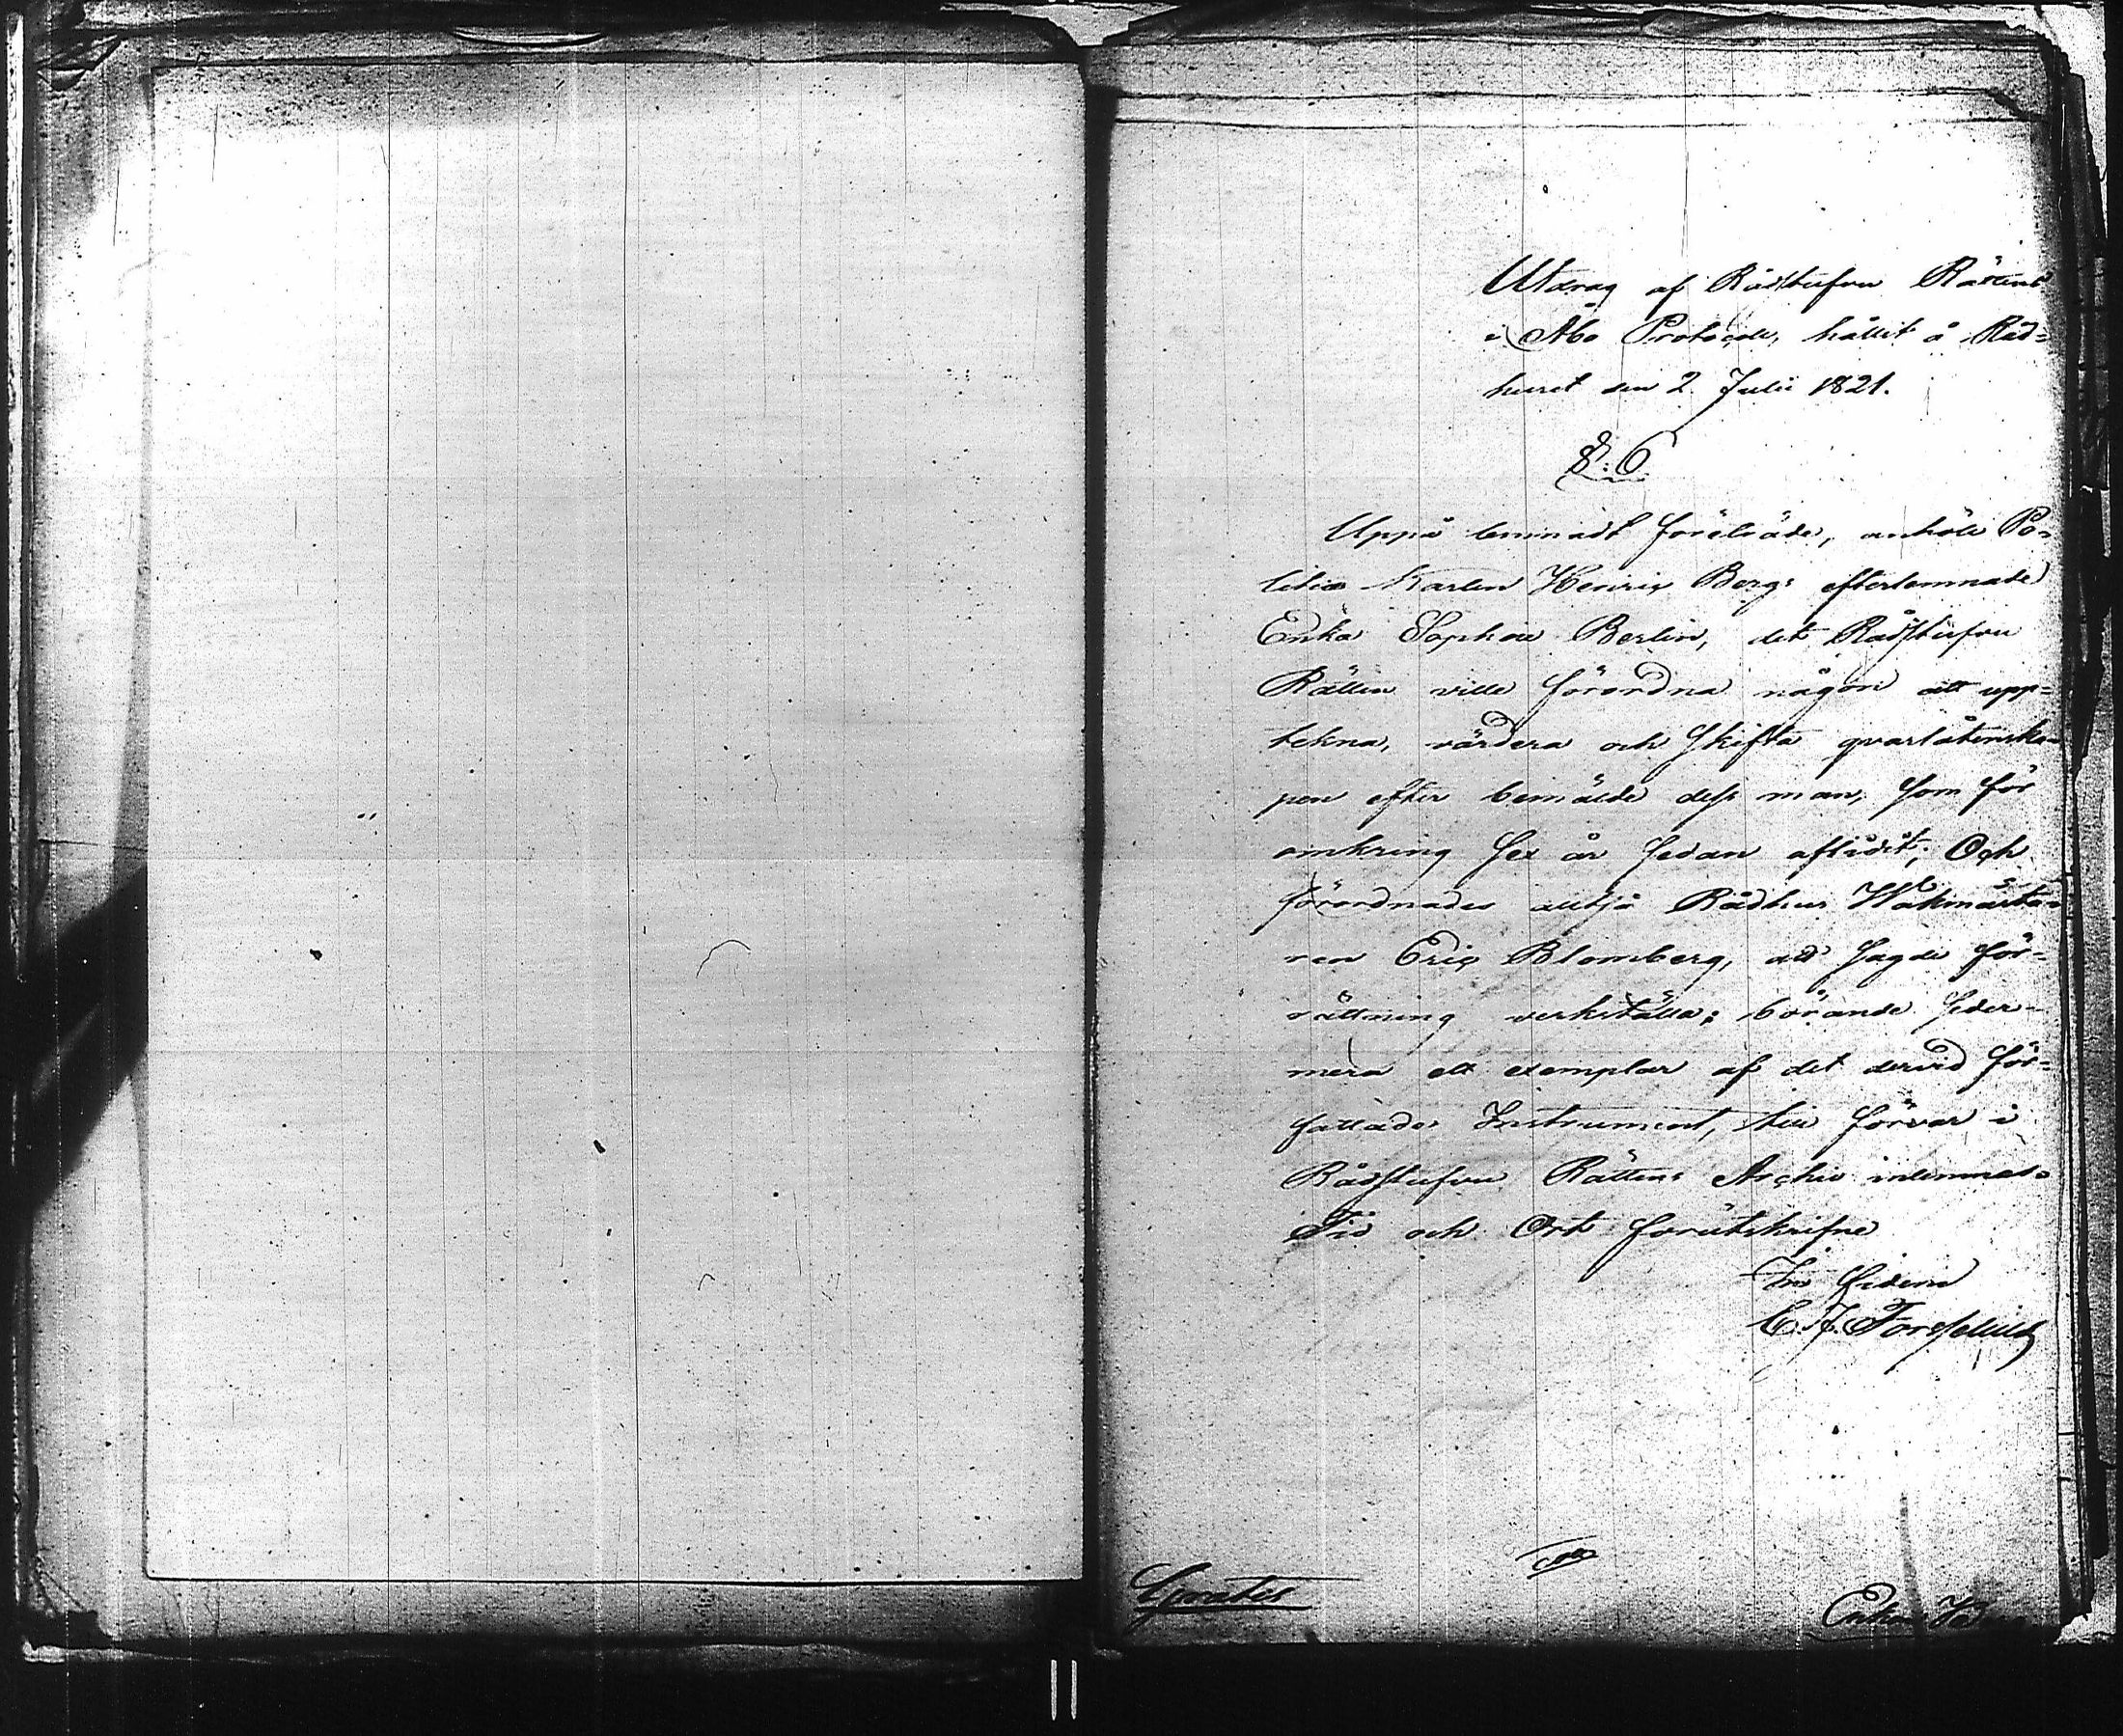 Utdrag af Rådstufvu Rättens
i Åbo Protocoll, hållit å Råd=
huset den 2 Julii 1821.
§. 6.
Uppå lemnadt företräde, anhöll Po=
litie Karlen Henric Bergs efterlemnade
Enka Sophia Berlin, det Rådstufvu
Rätten ville förordna någon att upp=
tekna, värdera och skifta qvarlåtenska=
pen efter bemälde dess man, som för
omkring sex år sedan aflidit; Och
förordnades alltså Rådhus Wakmästa=
ren Eric Blomberg, att sagde för=
rättning verkställa; börande seder=
mera ett exemplar af det dervid för=
fattade Instrument, till förvar i
Rådstufvu Rättens Archiv inlemnas.
Tid och Ort förutskrifne
In fidem
C. J. Forsselius
Gratis
Enkan Berg